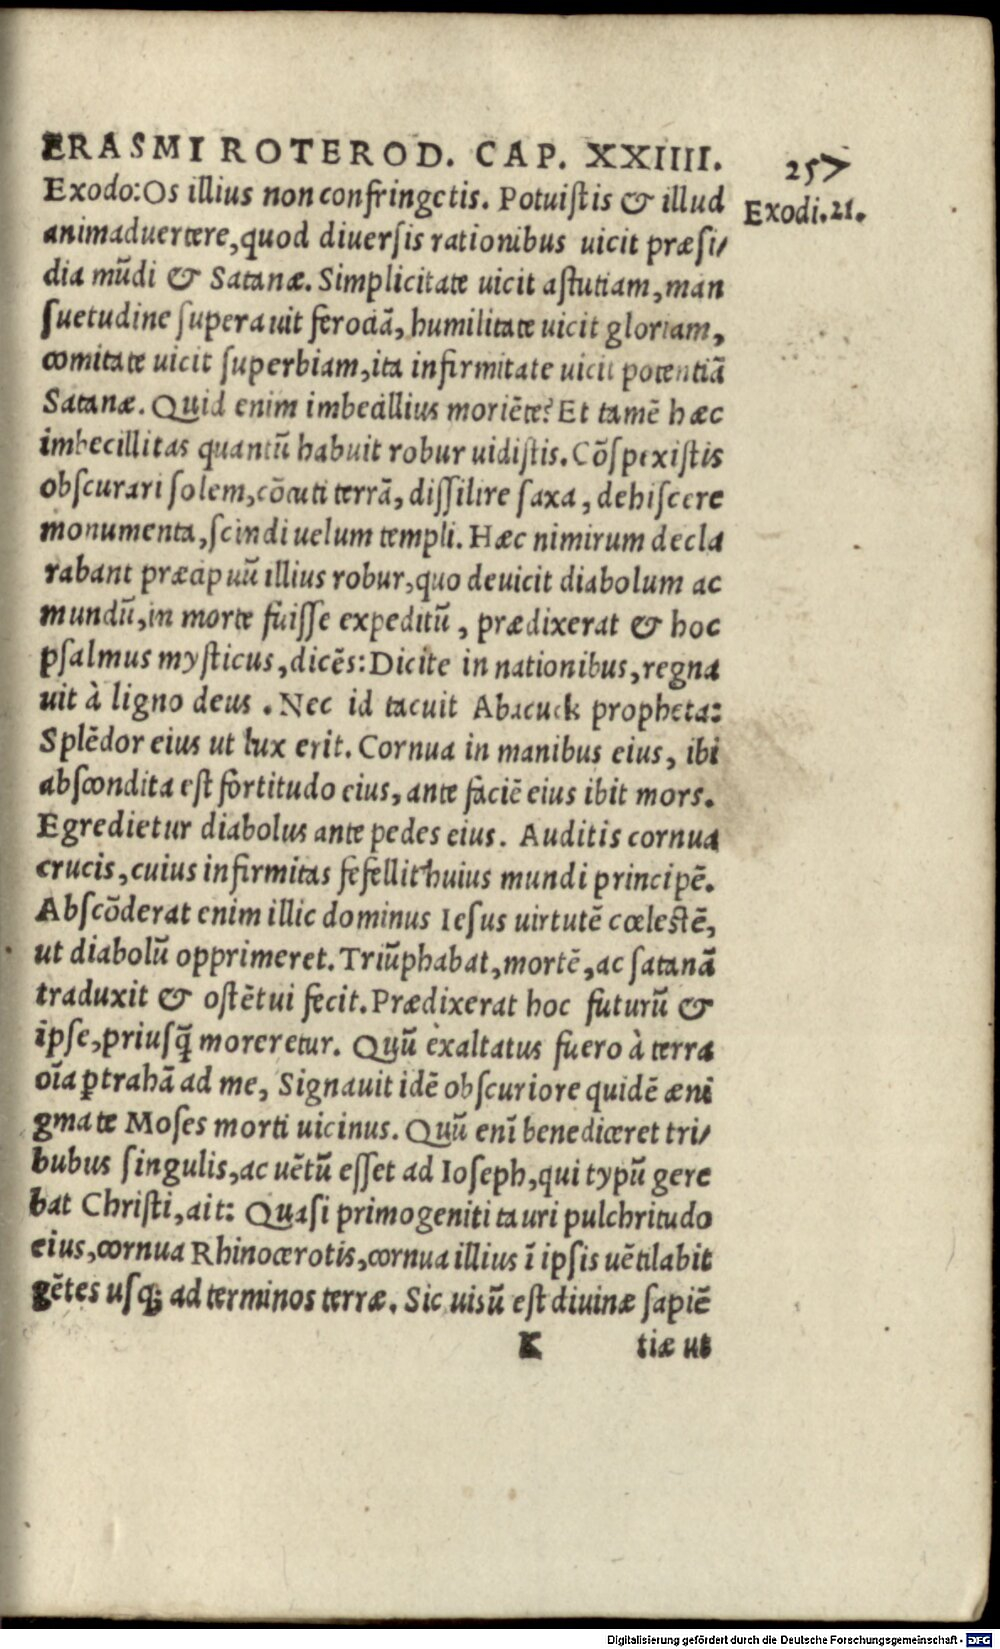 ERASMI ROTEROD. CAP. XXIIII.
257
Exodo: Os illius non confringetis. Potuiſtis & illud
Exodi.21.
animaduertere, quod diuerſis rationibus uicit præſi/
dia mũdi & Satanæ. Simplicitate uicit aſtutiam, man
ſuetudine ſuperauit ferociã, humilitate uicit gloriam,
comitate uicit ſuperbiam, ita infirmitate uicit potentiã
Satanæ. Quid enim imbecillius moriẽte? Et tamẽ hæc
imbecillitas quantũ habuit robur uidiſtis. Cõſpexiſtis
obſcurari ſolem, cõcuti terrã, diſſilire ſaxa, dehiſcere
monumenta, ſcindi uelum templi. Hæc nimirum decla
rabant præcipuũ illius robur, quo deuicit diabolum ac
mundũ, in morte fuiſſe expeditũ, prædixerat & hoc
pſalmus myſticus, dicẽs: Dicite in nationibus, regna
uit à ligno deus. Nec id tacuit Abacuck propheta:
Splẽdor eius ut lux erit. Cornua in manibus eius, ibi
abſcondita eſt fortitudo eius, ante faciẽ eius ibit mors.
Egredietur diabolus ante pedes eius. Auditis cornua
crucis, cuius infirmitas fefellit huius mundi principẽ.
Abſcõderat enim illic dominus Ieſus uirtutẽ cœleſtẽ,
ut diabolũ opprimeret. Triũphabat, mortẽ, ac ſatanã
traduxit & oſtẽtui fecit. Prædixerat hoc futurũ &
ipſe, priuſq̃ moreretur. Quũ exaltatus fuero à terra
oĩa ꝑtrahã ad me, Signauit idẽ obſcuriore quidẽ æni
gmate Moſes morti uicinus. Quũ enĩ benediceret tri/
bubus ſingulis, ac uẽtũ eſſet ad Ioſeph, qui typũ gere
bat Chriſti, ait: Quaſi primogeniti tauri pulchritudo
eius, cornua Rhinocerotis, cornua illius ĩ ipſis uẽtilabit
gẽtes uſq; ad terminos terræ. Sic uisũ eſt diuinæ ſapiẽ
K tiæ ut
Digitalisierung gefördert durch die Deutsche Forschungsgemeinschaft - DFG